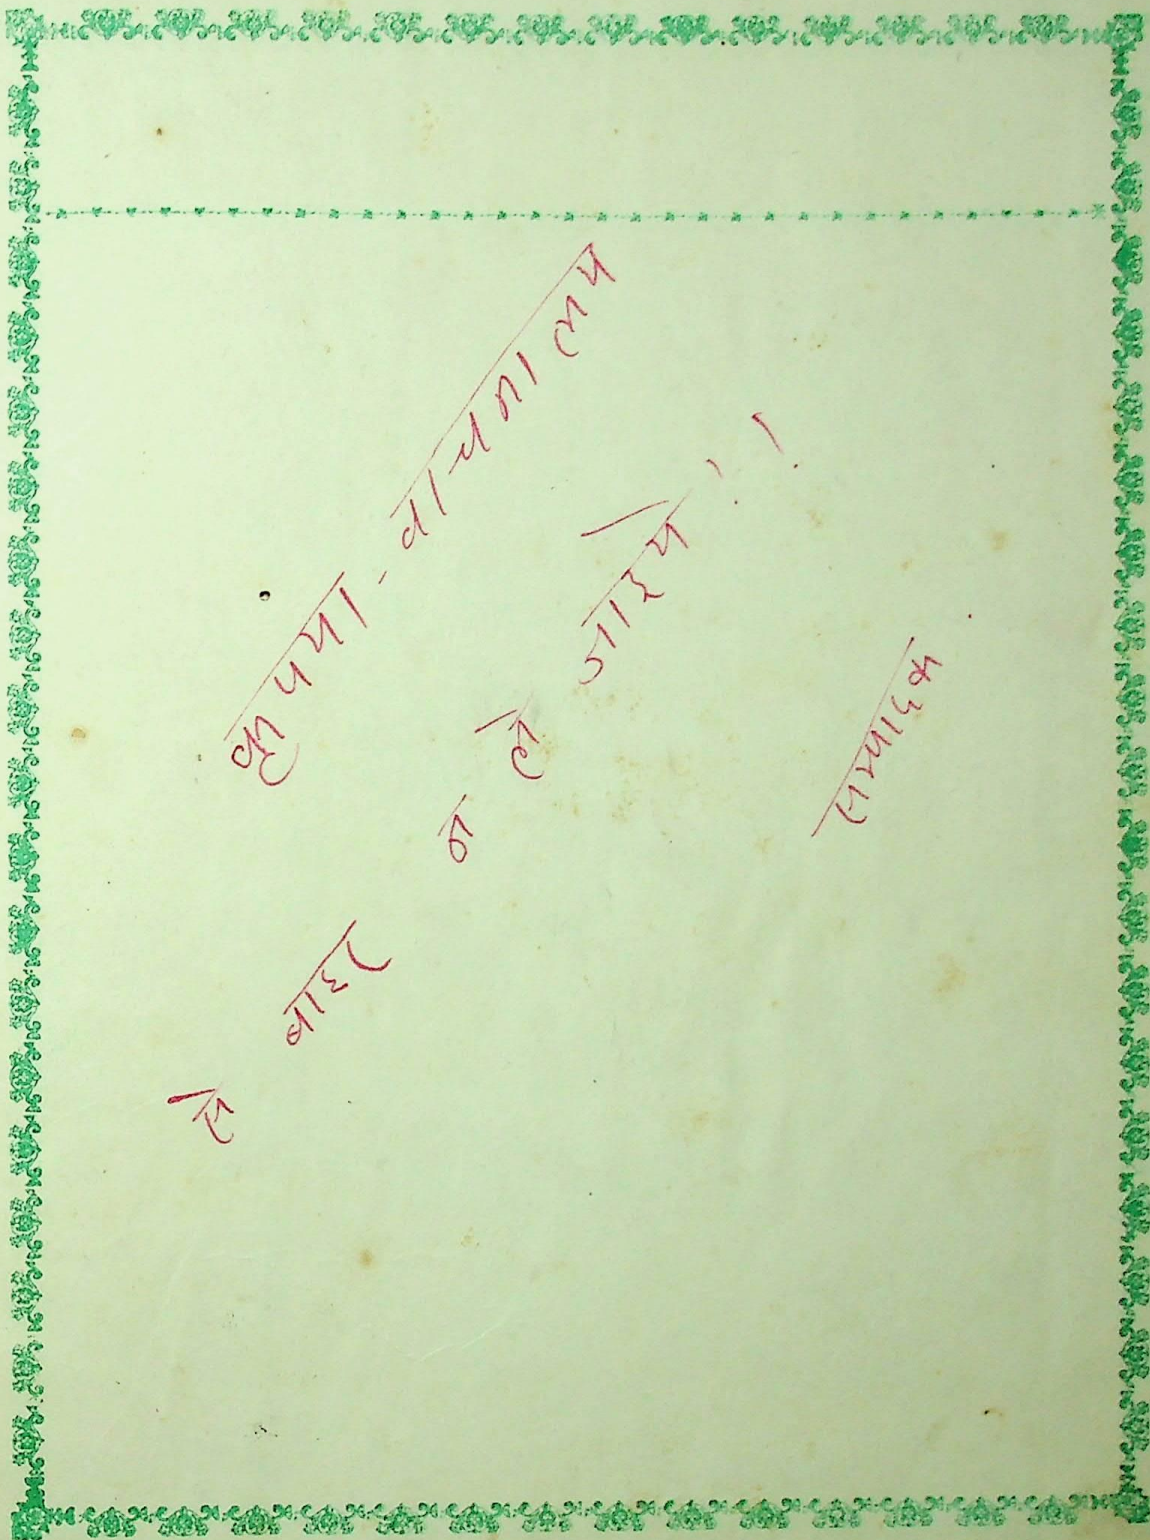 कृपया - वाचनालय
से बाहर न ले जाइये !!
सम्पादक